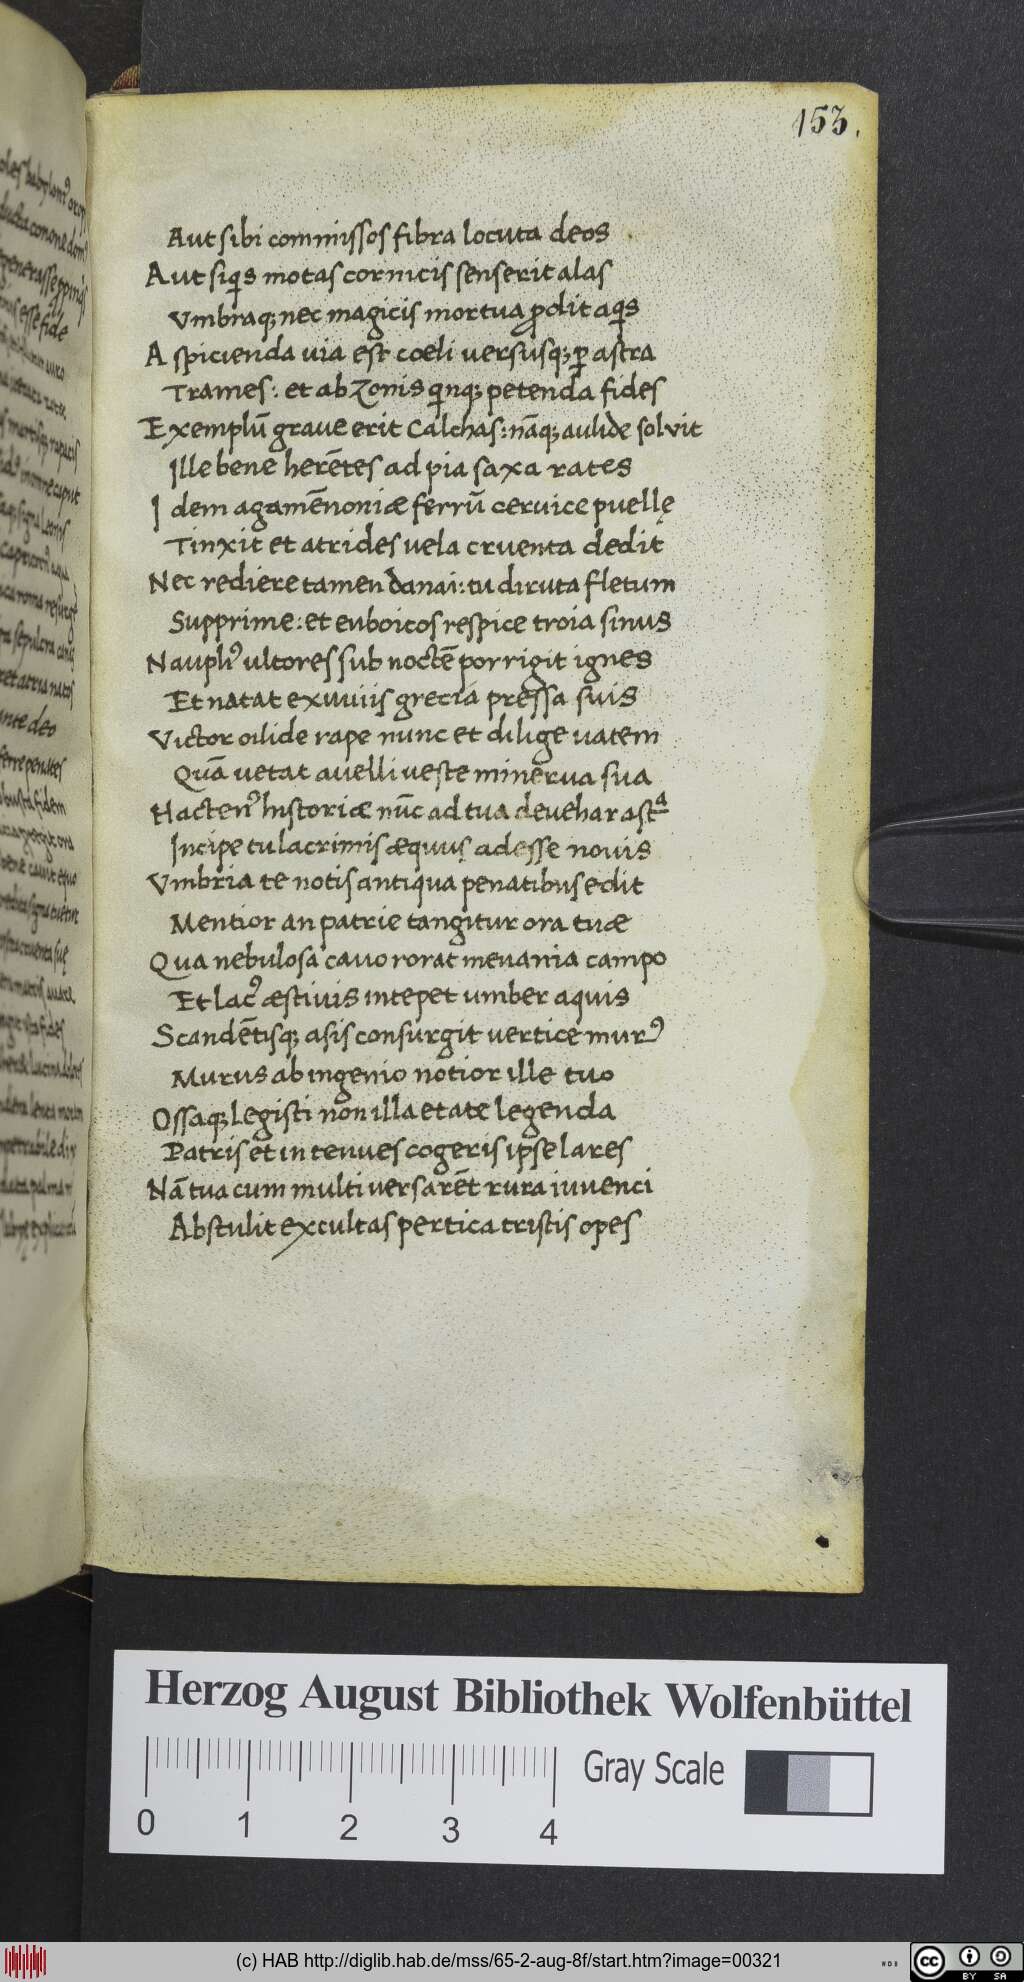 153.
Aut sibi commissos fibra locuta deos
Aut siq̃s motas cornicis senserit alas
Vmbraq; nec magicis mortua ꝓdit aq̃s
Aspicienda uia est coeli uersusq; ꝑ astra
Trames: et ab Zonis q̃nq; petenda fides
Exemplũ graue erit Calchas: nãq; aulide soluit
Ille bene herẽtes ad pia saxa rates
Idem agamẽnoniæ ferrũ ceruice puellę
Tinxit et atrides uela cruenta dedit
Nec rediere tamen danai: tu diruta fletum
Supprime: et euboicos respice troia sinus
Naupliꝰ ultores sub noctẽ porrigit ignes
Et natat exuuiis grecia pressa suis
Victor oilide rape nunc et dilige uatem
Quã uetat auelli ueste minerua sua
Hactenꝰ historiæ nũc ad tua deuehar astᵃ
Incipe tu lacrimis æquus adesse nouis
Vmbria te notis antiqua penatibus edit
Mentior an patrie tangitur ora tuæ
Qua nebulosa cauo rorat meuania campo
Et lacꝰ æstiuis intepet umber aquis
Scandẽtisq; asis consurgit uertice murꝰ
Murus ab ingenio notior ille tuo
Ossaq; legisti non illa etate legenda
Patris et in tenues cogeris ipse lares
Nã tua cum multi uersarẽt rura iuuenci
Abstulit excultas pertica tristis opes
Herzog August Bibliothek Wolfenbüttel
0 1 2 3 4
Gray Scale
(c) HAB http://diglib.hab.de/mss/65-2-aug-8f/start.htm?image=00321
cc BY SA